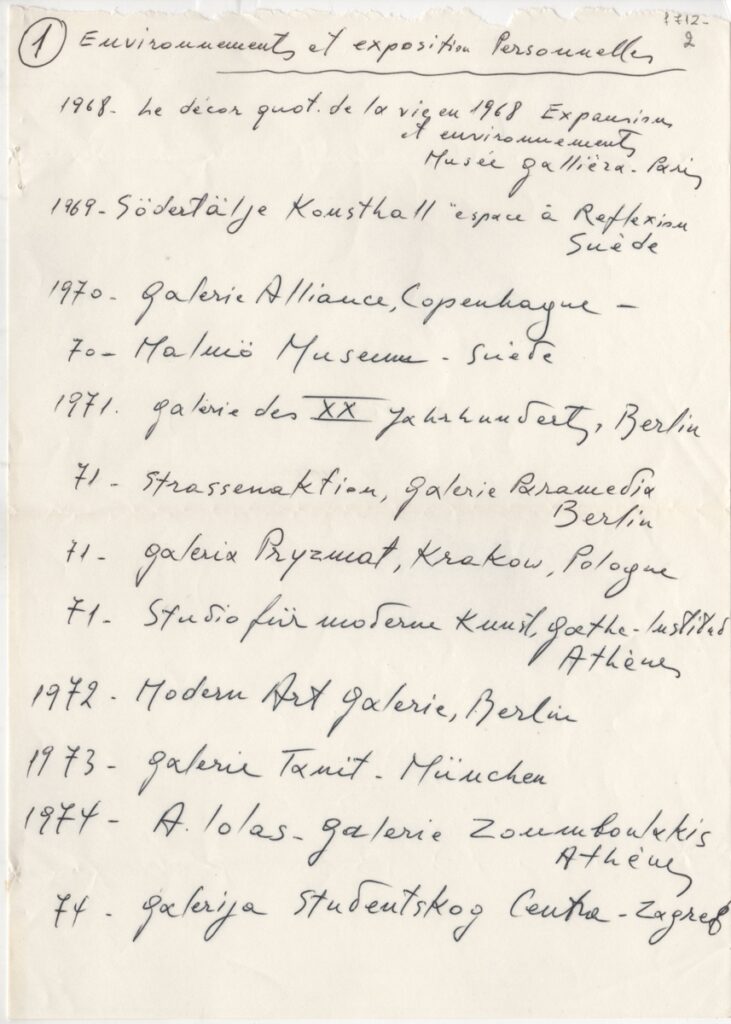 1712-
2
1 Environnements et exposition Personnelles
1968- Le décor quot. de la vie en 1968 Expansion
et environnements
Musée galliéra - Paris
1969- Södertälje Konsthall "espace à Reflexion
Suède
1970- Galerie Alliance, Copenhague -
70- Malmö Museum - Suède
1971. galerie des XX Jahrhunderts, Berlin
71 - Strassenaktion, galerie Paramedia
Berlin
71- galeria Pryzmat, Krakow, Pologne
71. Studio für moderne Kunst, gœthe-Institut
Athènes
1972- Modern Art Galerie, Berlin
1973- galerie Tanit - München
1974- A. Iolas - galerie Zoumboulakis
Athènes
74 - galerija Studentskog Centra - Zagreb